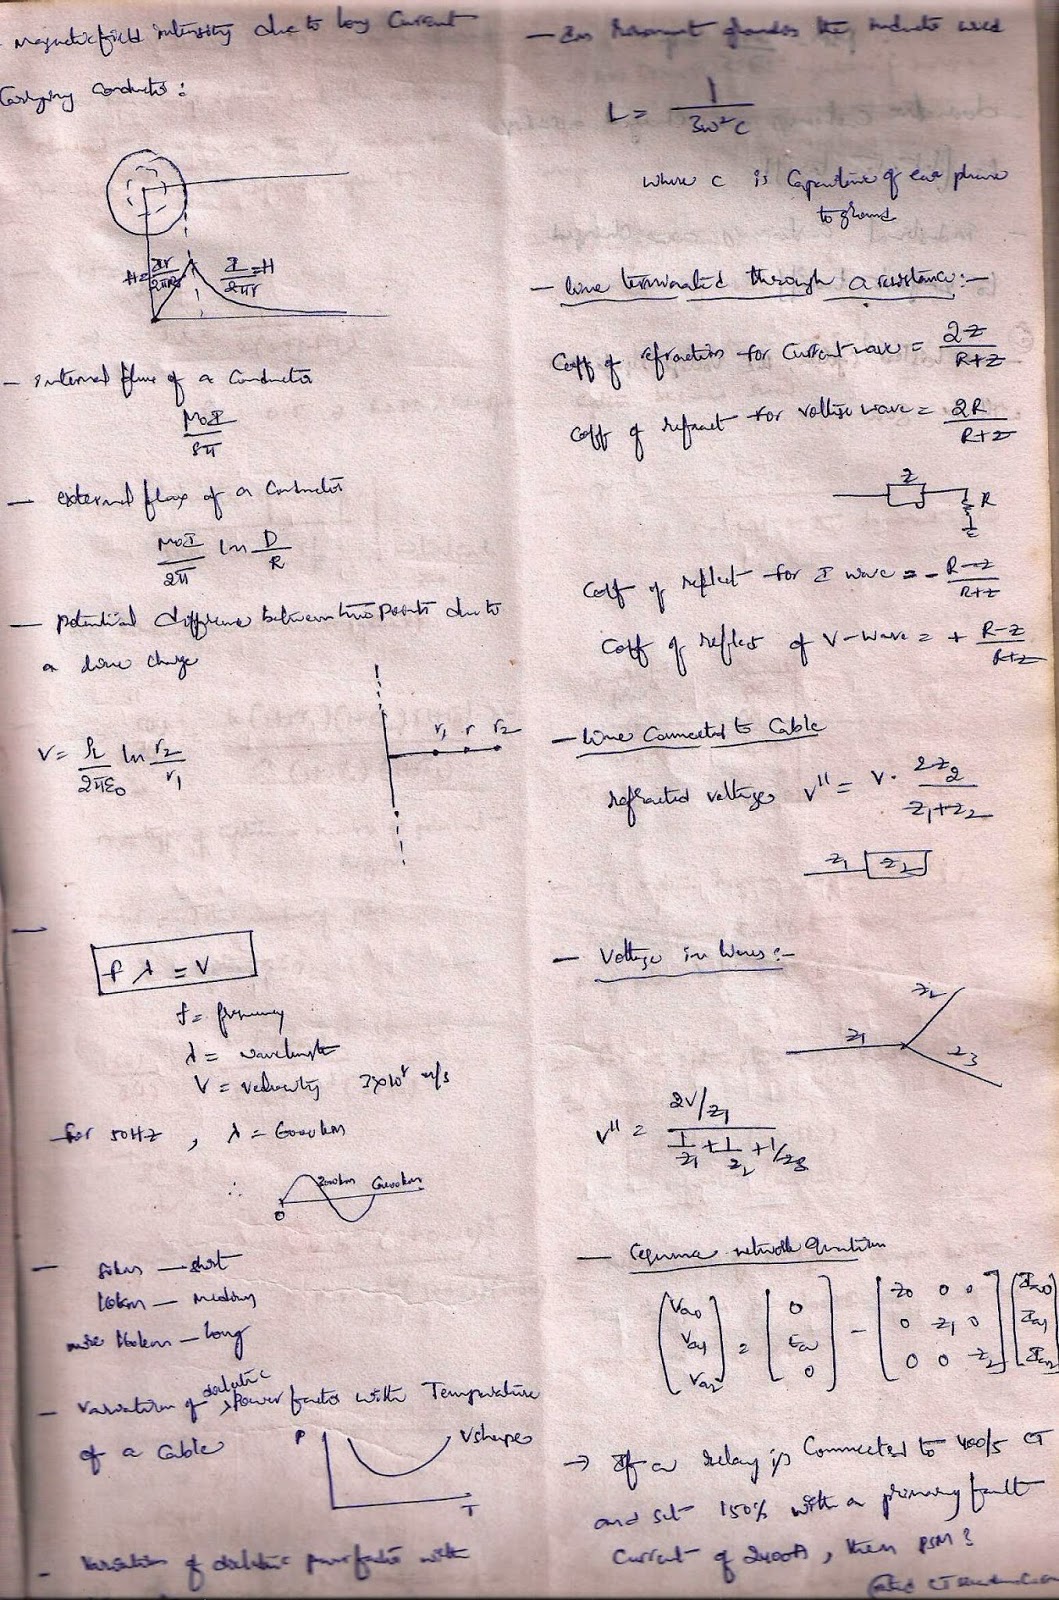 - Magnetic field intensity due to long Current
Carrying conductor:
H = Ir/2πR² I/2πr = H
- internal flux of a Conductor
μ0I/8π
- external flux of a Conductor
μ0I/2π ln D/R
- potential difference between two points due to
a line charge
r1 r r2
V = ρL/2πε0 ln r2/r1
- fλ = V
f = frequency
λ = wavelength
V = velocity 3x10^8 m/s
for 50HZ, λ = 6000km
∴ 0 3000km 6000km
- 80km — short
160km — medium
more 160km — long
- Variation of dielectric Power factor with Temperature
of a Cable
P V shape
T
- Variation of dielectric power factor with
- In Resonant grounding the inductor used
L = 1/3ω²C
where C is Capacitance of each phase
to ground
- line terminated through a resistance:-
Coeff of refraction for Current wave = 2Z/R+Z
Coeff of refract for voltage wave = 2R/R+Z
Z
R
Coeff of reflect for I wave = - R-Z/R+Z
Coeff of reflect of V-wave = + R-Z/R+Z
- Line Connected to Cable
refracted voltage V'' = V . 2Z2/Z1+Z2
Z1 Z2
- Voltage in Waves:-
Z2
Z1
Z3
V'' = 2V/Z1 / 1/Z1 + 1/Z2 + 1/Z3
- Sequence network Equation
(Va0 Va1 Va2) = [0 Ea 0] - [Z0 0 0 0 Z1 0 0 0 Z2] [Ia0 Ia1 Ia2]
→ If a relay is Connected to 400/5 CT
and set 150% with a primary fault
Current of 2400A, then PSM?